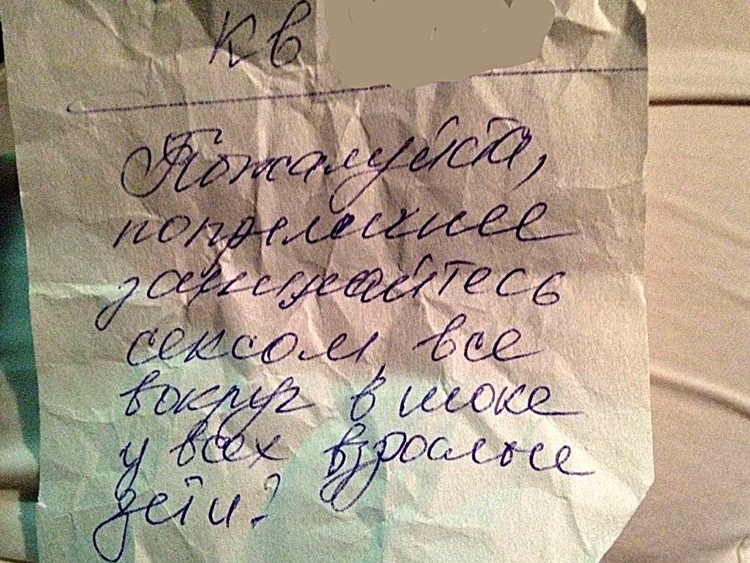 кв
Пожалуйста,
поприличнее
занимайтесь
сексом, все
вокруг в шоке
у всех взрослые
дети?